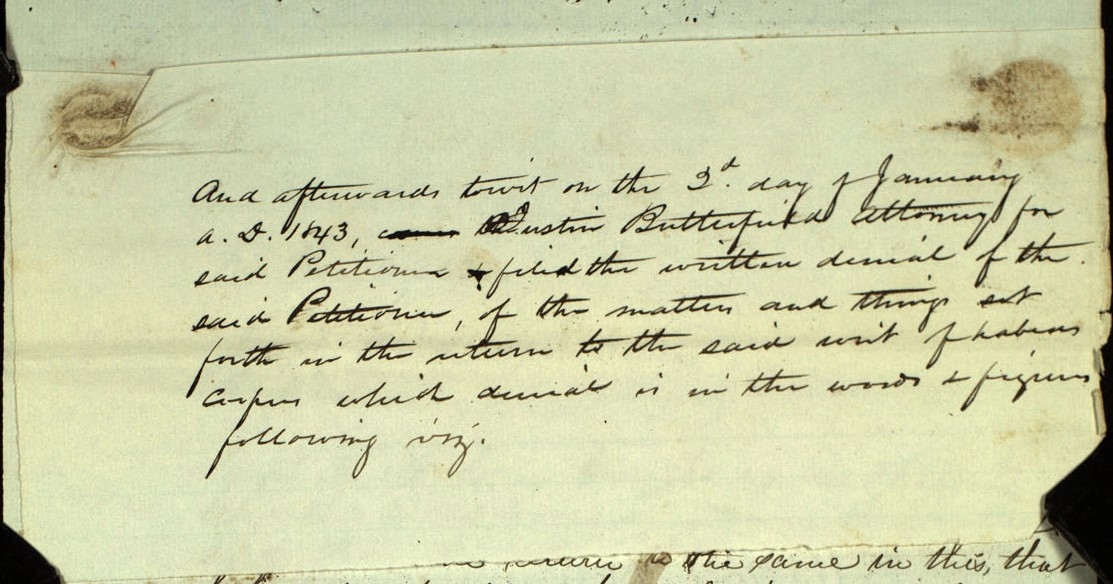 And afterwards towit on the 3d. day of January
A. D. 1843, Justin Butterfield attorney for
said Petitioner & filed the written denial of the
said Petitioner, of the matters and things set
forth in the return to the said writ of habeas
corpus which denial is in the words & figures
following viz.
return to the same in this, that